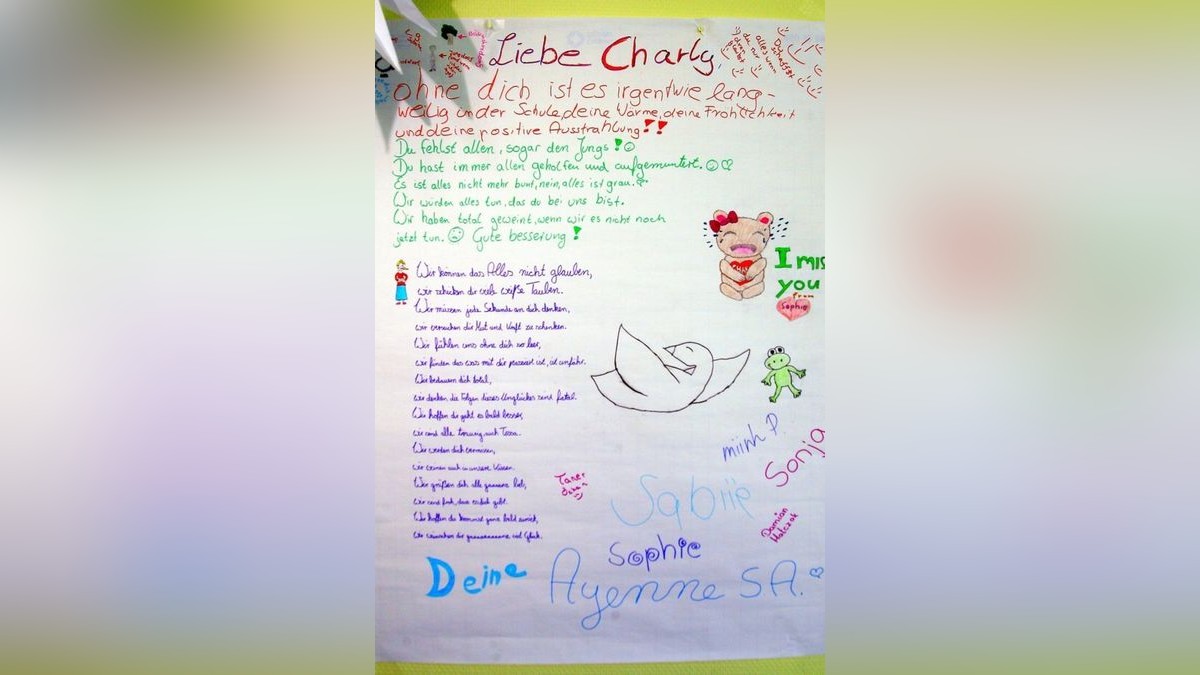 Liebe Charly,
ohne dich ist es irgentwie lang-
weilig in der Schule, deine Wärme, deine Fröhlichkeit
und deine positive Ausstrahlung!!
Du fehlst allen, sogar den Jungs!
Du hast immer allen geholfen und aufgemuntert.
Es ist alles nicht mehr bunt, nein, alles ist grau.
Wir würden alles tun, das du bei uns bist.
Wir haben total geweint, wenn wir es nicht noch
jetzt tun. Gute besserung!
Wir können das Alles nicht glauben,
wir schicken dir viele weiße Tauben.
Wir müssen jede Sekunde an dich denken,
wir versuchen dir Mut und Kraft zu schenken.
Wir fühlen uns ohne dich so leer,
wir finden das was mit dir passiert ist, ist unfair.
Wir bedauern dich total,
wir denken die Folgen dieses Unglückes sind fatal.
Wir hoffen dir geht es bald besser,
wir sind alle traurig, auch
Wir werden dich vermissen,
wir weinen auch in unsere Kissen.
Wir grüßen dich alle ganz lieb,
wir sind froh, dass es dich gibt.
Wir hoffen du kommst ganz bald zurück,
wir wünschen dir viel Glück.
I mis
you
from
Sophie
miinh P.
Sonja
Sabiie
Damian
Sophie
Deine
Ayenne SA.